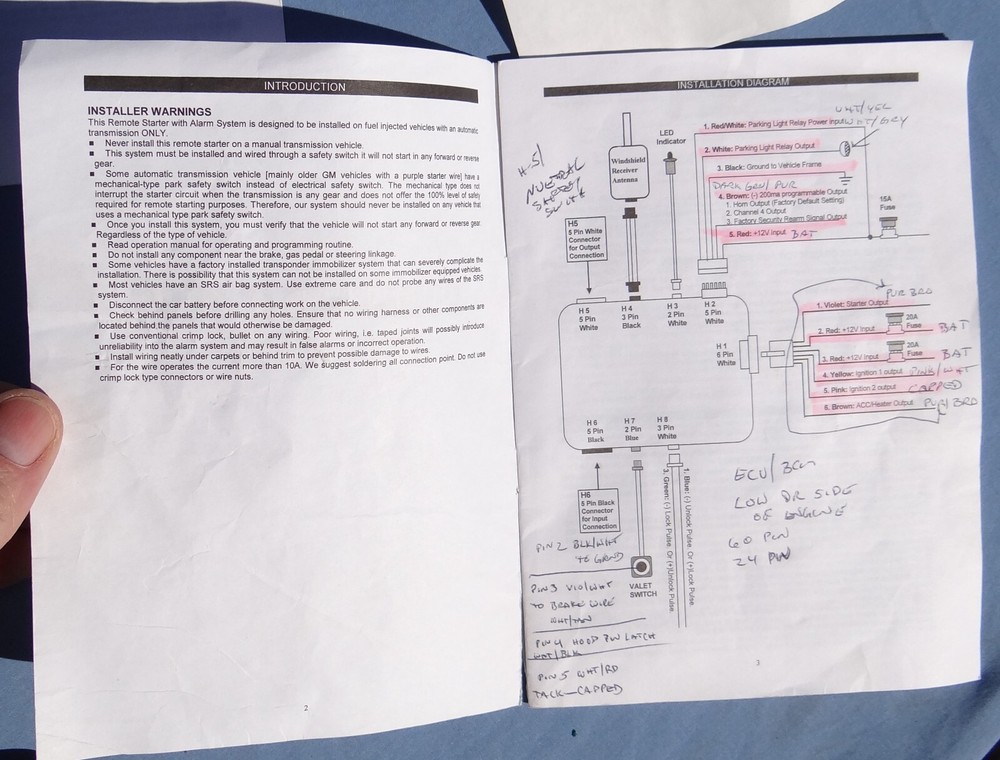 INTRODUCTION
INSTALLER WARNINGS
This Remote Starter with Alarm System is designed to be installed on fuel injected vehicles with an automatic
transmission ONLY.
■ Never install this remote starter on a manual transmission vehicle.
■ This system must be installed and wired through a safety switch it will not start in any forward or reverse
gear.
■ Some automatic transmission vehicle [mainly older GM vehicles with a purple starter wire] have a
mechanical-type park safety switch instead of electrical safety switch. The mechanical type does not
interrupt the starter circuit when the transmission is any gear and does not offer the 100% level of safety
required for remote starting purposes. Therefore, our system should never be installed on any vehicle that
uses a mechanical type park safety switch.
■ Once you install this system, you must verify that the vehicle will not start any forward or reverse gear.
Regardless of the type of vehicle.
■ Read operation manual for operating and programming routine.
■ Do not install any component near the brake, gas pedal or steering linkage.
■ Some vehicles have a factory installed transponder immobilizer system that can severely complicate the
installation. There is possibility that this system can not be installed on some immobilizer equipped vehicles.
■ Most vehicles have an SRS air bag system. Use extreme care and do not probe any wires of the SRS
system.
■ Disconnect the car battery before connecting work on the vehicle.
■ Check behind panels before drilling any holes. Ensure that no wiring harness or other components are
located behind the panels that would otherwise be damaged.
■ Use conventional crimp lock, bullet on any wiring. Poor wiring, i.e. taped joints will possibly introduce
unreliability into the alarm system and may result in false alarms or incorrect operation.
■ Install wiring neatly under carpets or behind trim to prevent possible damage to wires.
■ For the wire operates the current more than 10A. We suggest soldering all connection point. Do not use
crimp lock type connectors or wire nuts.
2
INSTALLATION DIAGRAM
WHT/YEL
1. Red/White: Parking Light Relay Power Input
WHT/GRY
2. White: Parking Light Relay Output
3. Black: Ground to Vehicle Frame
DARK GRN/PUR
4. Brown: (-) 200ma programmable Output
1. Horn Output (Factory Default Setting)
2. Channel 4 Output
3. Factory Security Rearm Signal Output
5. Red: +12V Input BAT
15A
Fuse
LED
Indicator
Windshield
Receiver
Antenna
H-5/
NUETRAL
SAFETY
SWITCH
H5
5 Pin White
Connector
for Output
Connection
H 5
5 Pin
White
H 4
3 Pin
Black
H 3
2 Pin
White
H 2
5 Pin
White
H 1
6 Pin
White
PUR BRD
1. Violet: Starter Output
2. Red: +12V Input
20A
Fuse
BAT
3. Red: +12V Input
20A
Fuse
BAT
4. Yellow: Ignition 1 output PINK/WHT
5. Pink: Ignition 2 output CAPPED
6. Brown: ACC/Heater Output PUR/BRD
H 6
5 Pin
Black
H 7
2 Pin
Blue
H 8
3 Pin
White
H6
5 Pin Black
Connector
for Input
Connection
VALET
SWITCH
3. Green: (-) Lock Pulse. Or (+)Unlock Pulse.
1. Blue: (-) Unlock Pulse. Or (+)Lock Pulse.
ECU/BCM
LOW DR SIDE
OF ENGINE
60 PIN
24 PIN
PIN 2 BLK/WHT
TO GRND
PIN 3 VIO/WHT
TO BRAKE WIRE
WHT/TAN
PIN 4 HOOD PIN LATCH
WHT/BLK
PIN 5 WHT/RD
TACK—CAPPED
3